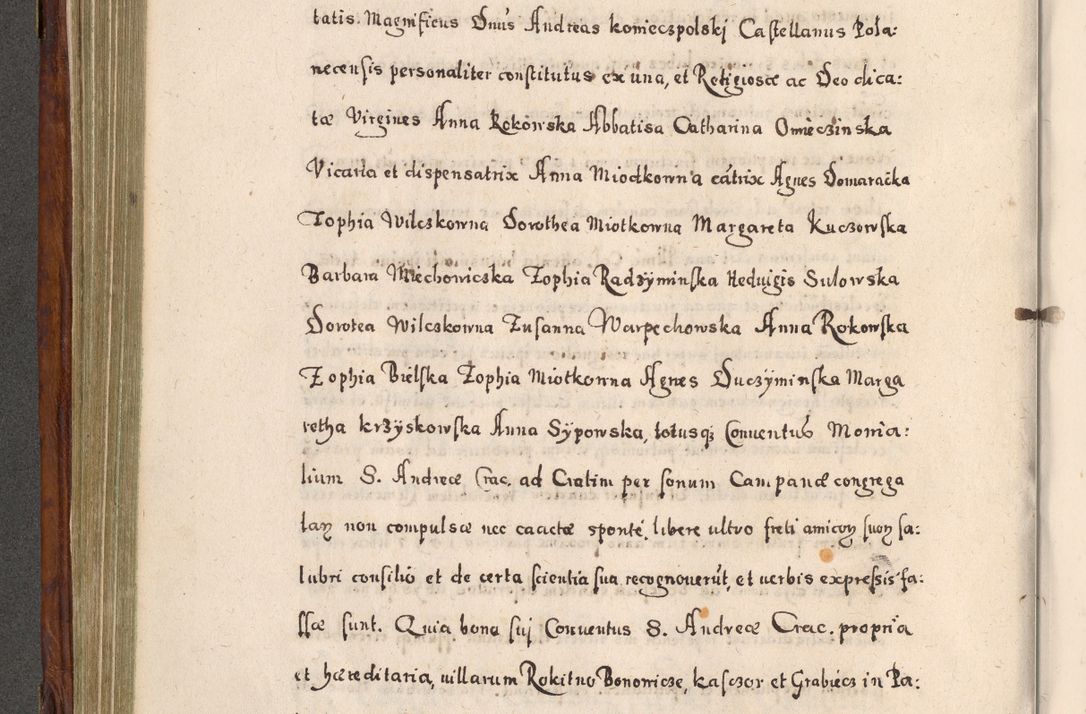 tatis. Magnificus Dnus Andreas koniecspolskj Castellanus Pola:
necensis personaliter constitutus ex una, et Religiosæ ac Deo dica:
tæ Virgines Anna Rokowska Abbatisa Catharina Omieczinska
Vicaria et dispensatrix Anna Miodkowna cátrix Agnes Domaraċka
Zophia Wilczkowna Dorothea Miotkowna Margareta Kuczowska
Barbara Miechowiczka Zophia Radzyminska Heduigis Sulowska
Dorotea Wilczkowna Zusanna Warpechowska Anna Rokowska
Zophia Bielska Zophia Miotkowna Agnes Duczÿminska Marga
retha krzÿskowska Anna Sÿpowska, totusq; Conuentus Monia:
lium S. Andreæ Crac. ad Cratim per sonum Campanæ congrega
taꝝ non compulsæ nec coactæ sponté, libere ultro freti amicoꝝ suoꝝ sa:
lubri consilio et de certa scientia sua recognouerút, et uerbis expressis fa:
ssæ sunt. Quia bona suj Conuentus S. Andreæ Crac. propria
et hæreditaria, uillarum Rokitno Bonowicze, kasczor et Grabiecz in Pa: